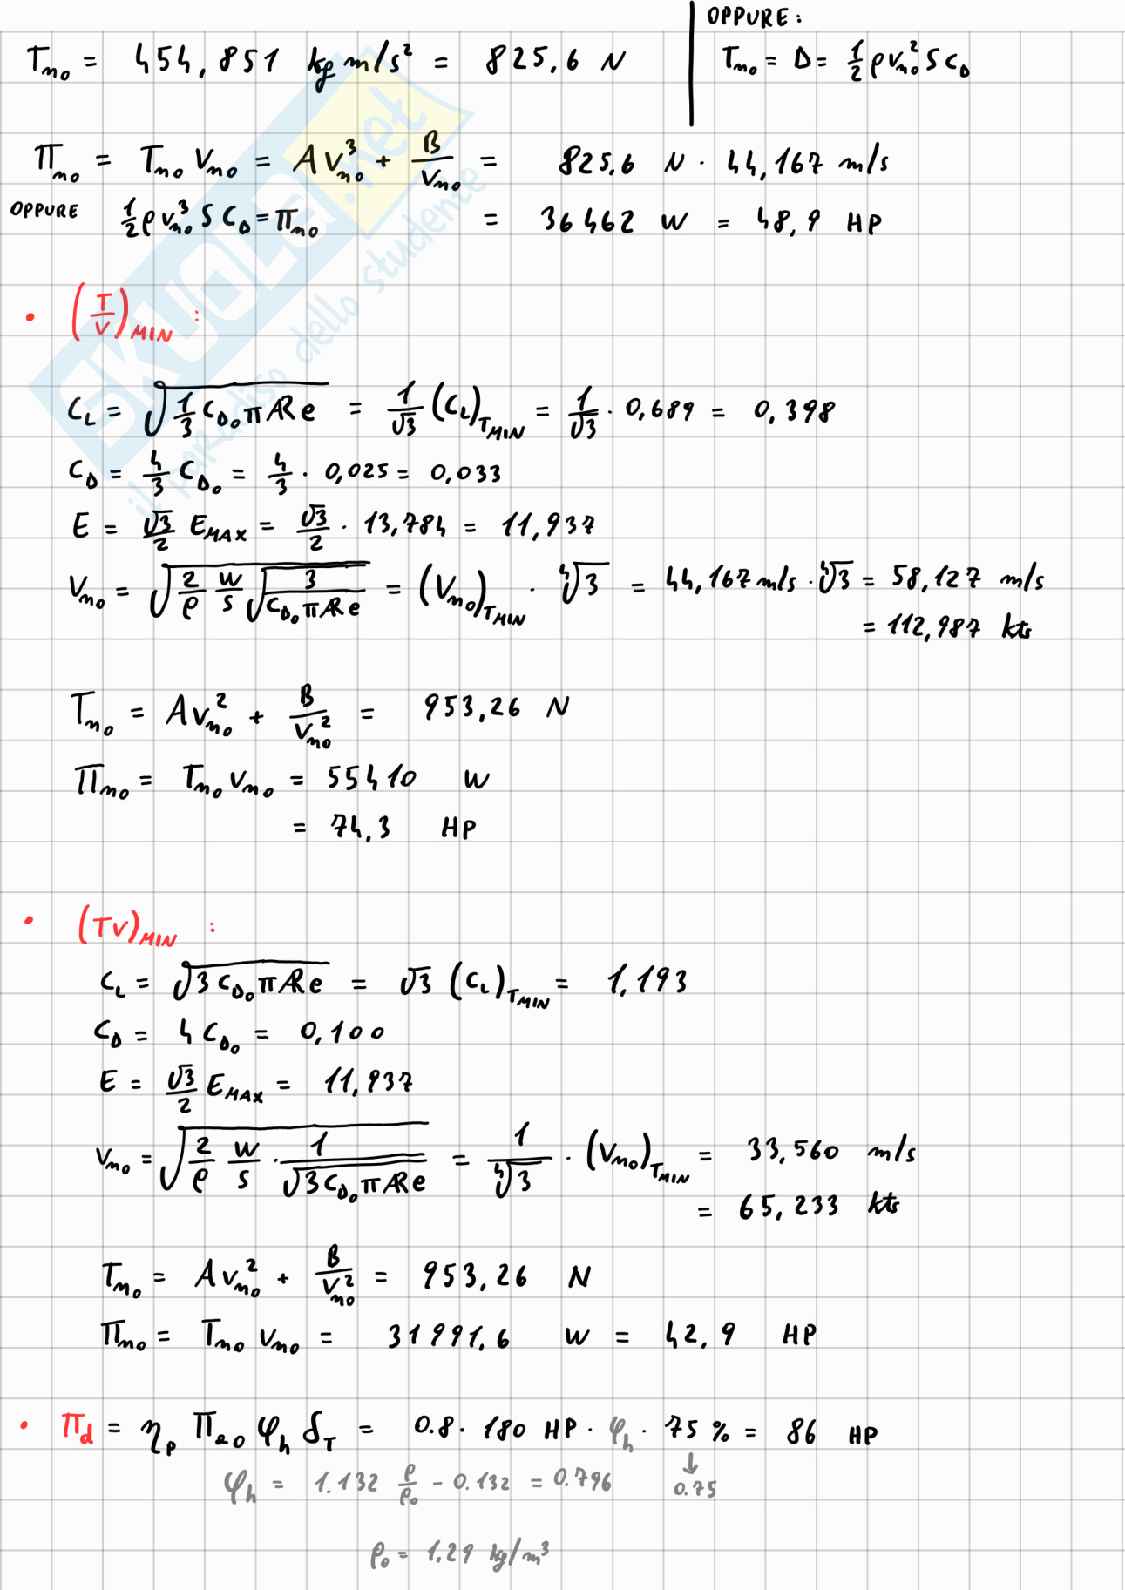 OPPURE:
T_no = 454,851 kg m/s² = 825,6 N
T_no = D = 1/2 ρ v_no² S C_D
Π_no = T_no V_no = A V_no³ + B/V_no = 825,6 N · 44,167 m/s
OPPURE 1/2 ρ v_no³ S C_D = Π_no = 36462 W = 48,9 HP
SKUOLA.net
il paradiso dello studente
• (T/V)_MIN :
C_L = √(1/3 C_D₀ π AR e) = 1/√3 (C_L)_T_MIN = 1/√3 · 0,689 = 0,398
C_D = 4/3 C_D₀ = 4/3 · 0,025 = 0,033
E = √3/2 E_MAX = √3/2 · 13,784 = 11,937
V_no = √(2/ρ W/S √(3/(C_D₀ π AR e))) = (V_no)_T_MIN · ⁴√3 = 44,167 m/s · ⁴√3 = 58,127 m/s
= 112,987 kts
T_no = A V_no² + B/V_no² = 953,26 N
Π_no = T_no V_no = 55410 W
= 74,3 HP
• (TV)_MIN :
C_L = √(3 C_D₀ π AR e) = √3 (C_L)_T_MIN = 1,193
C_D = 4 C_D₀ = 0,100
E = √3/2 E_MAX = 11,937
V_no = √(2/ρ W/S · 1/√(3 C_D₀ π AR e)) = 1/⁴√3 · (V_no)_T_MIN = 33,560 m/s
= 65,233 kts
T_no = A V_no² + B/V_no² = 953,26 N
Π_no = T_no V_no = 31991,6 W = 42,9 HP
• Π_d = η_p Π_a₀ φ_h δ_T = 0.8 · 180 HP · φ_h · 75 % = 86 HP
φ_h = 1.132 ρ/ρ₀ - 0.132 = 0.796 ↓ 0.75
ρ₀ = 1.29 kg/m³